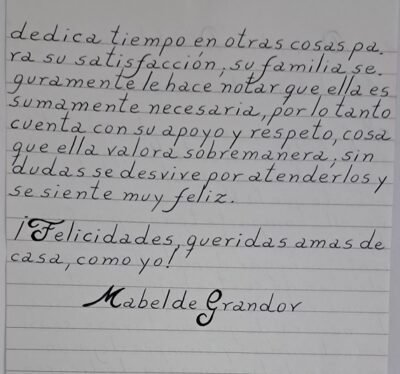 dedica tiempo en otras cosas pa.
ra su satisfacción, su familia se.
guramente le hace notar que ella es
sumamente necesaria, por lo tanto
cuenta con su apoyo y respeto, cosa
que ella valora sobremanera, sin
dudas se desvive por atenderlos y
se siente muy feliz.
¡Felicidades, queridas amas de
casa, como yo!
Mabel de Grandov